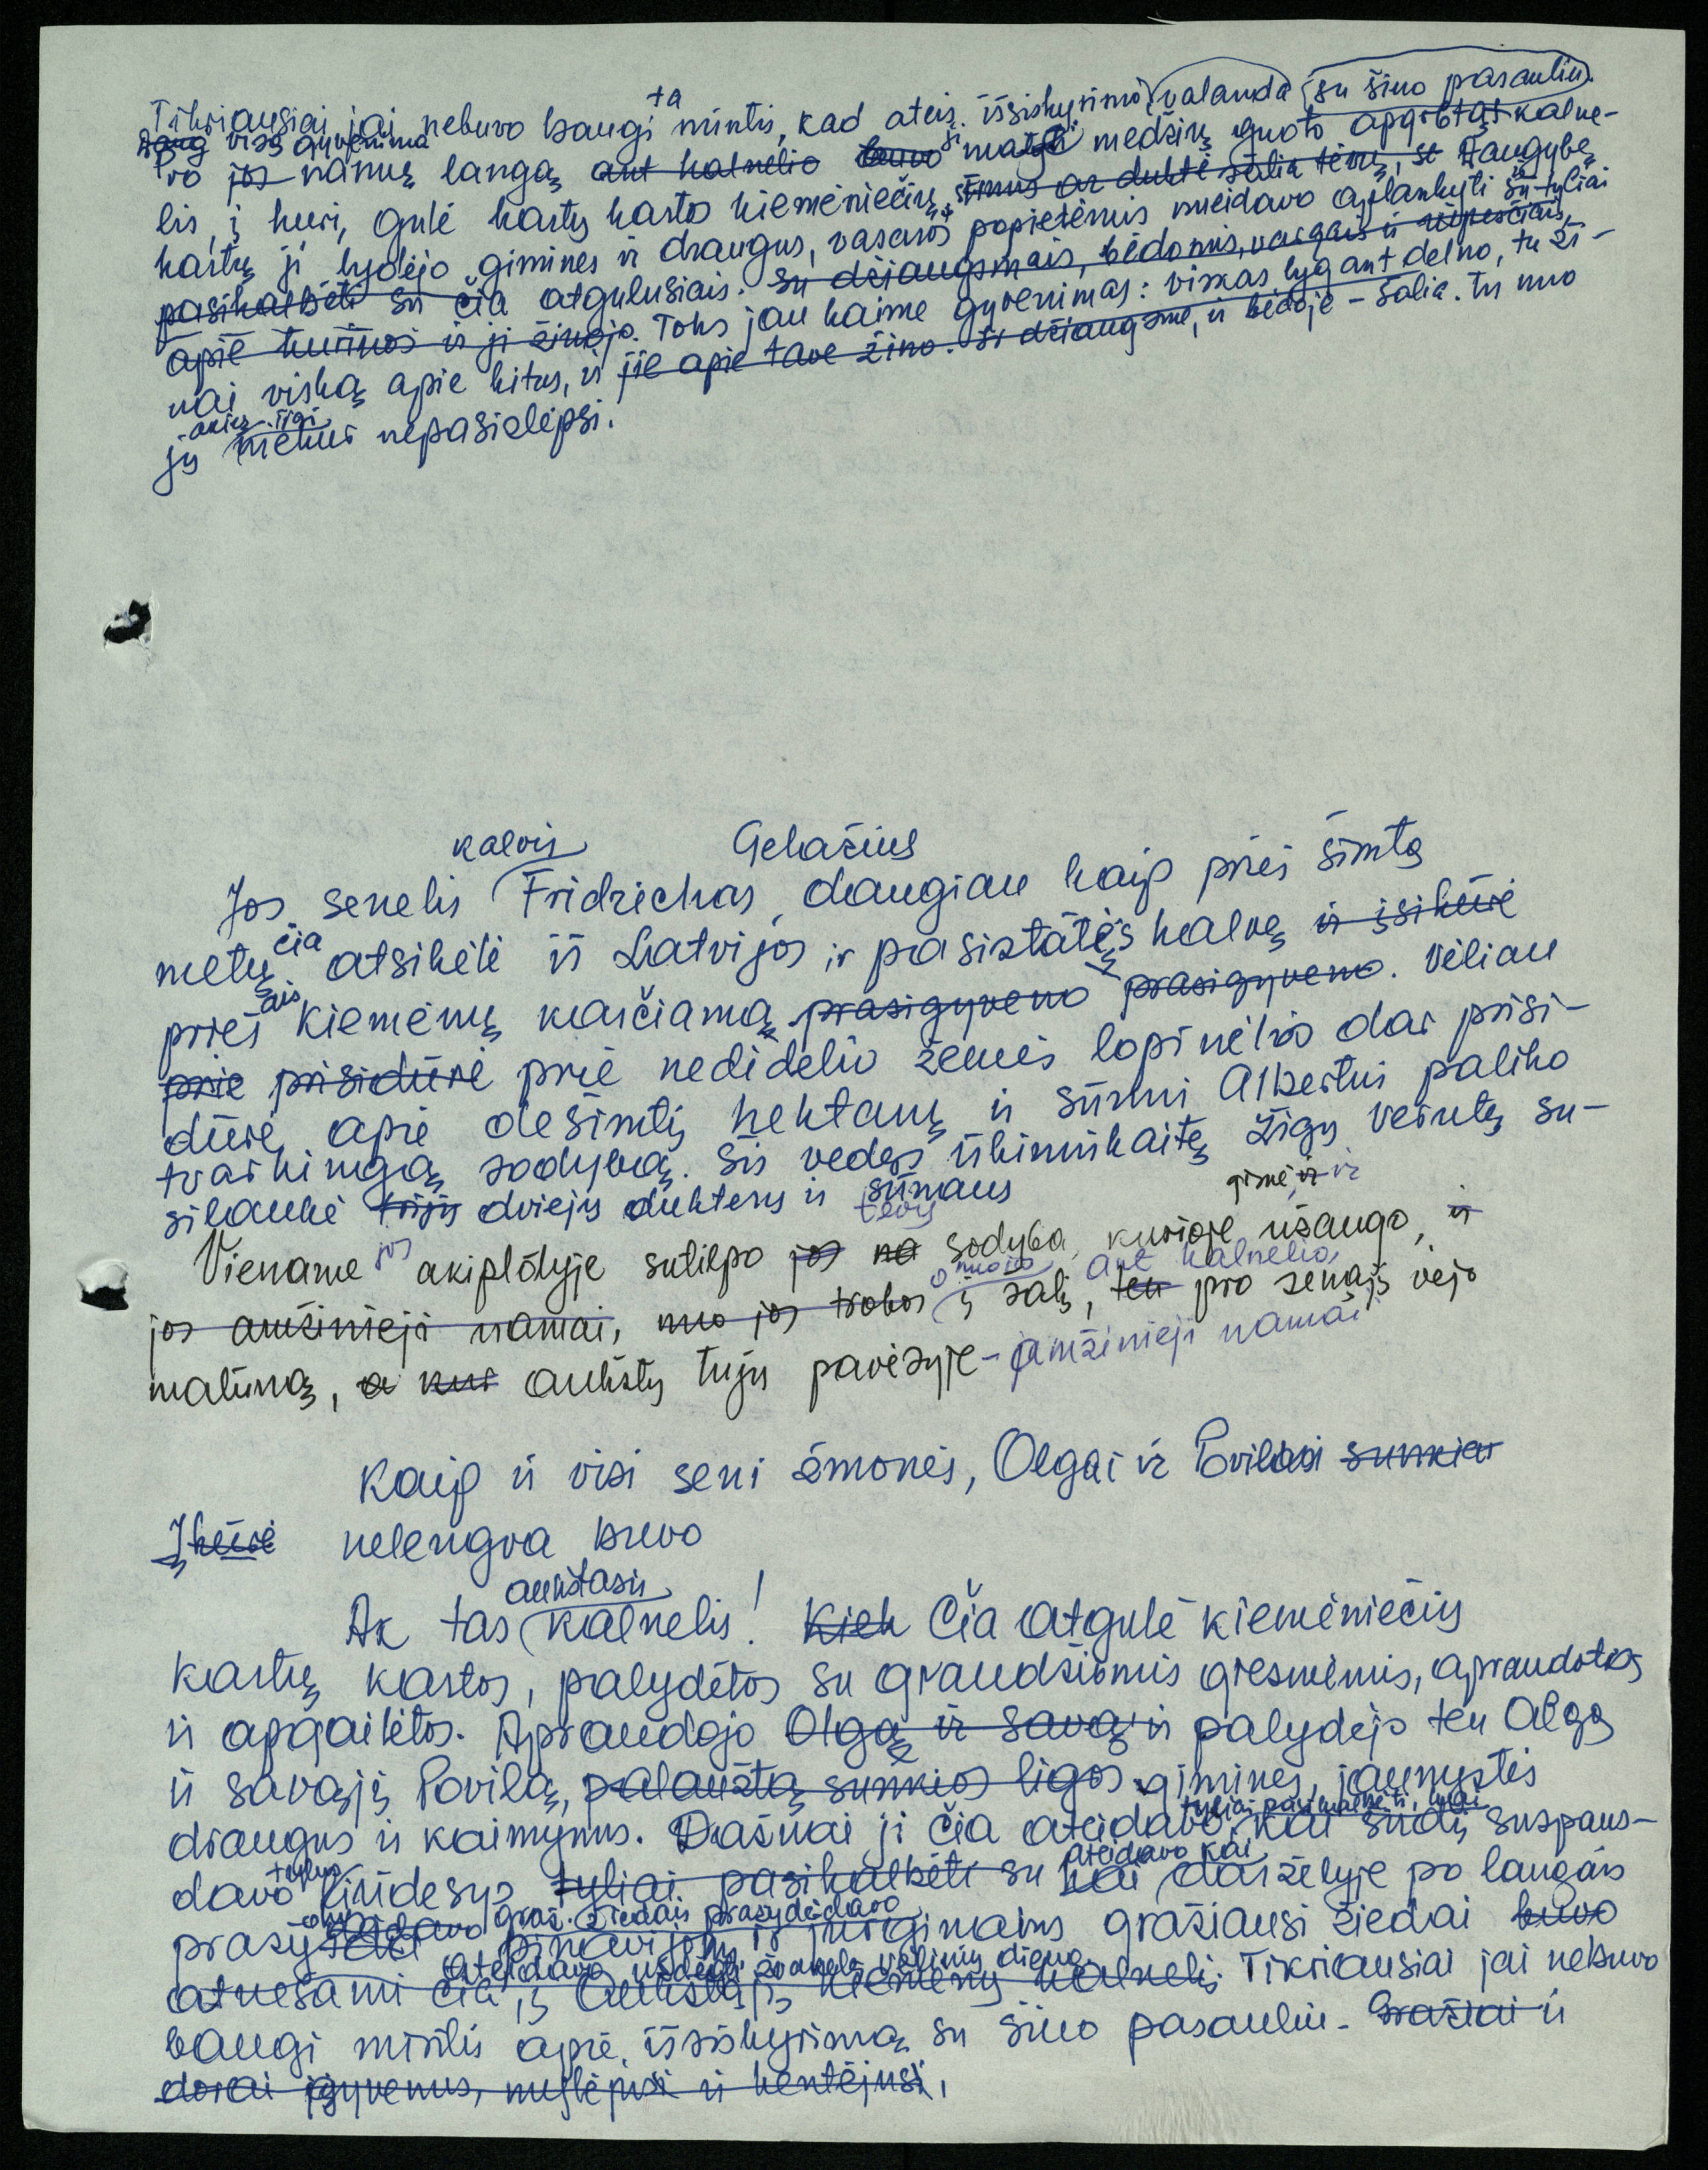 ta
Tikriausiai jai nebuvo baugi mintis, kad ateis išsiskyrimo valanda su šiuo pasauliu.
Daug visą gyvenimą
ro jos namų langą ant kalnelio buvo ji matė medžių guoto apgibtą kalne-
lis, į kurį, gulė kartų kartos kiemėniečių, sūnus ar duktė šalia tėvų, se Daugybę
kartų ji lydėjo gimines ir draugus, vasaros popietėmis nueidavo aplankyti jų tyliai
pasikalbėti su čia atgulusiais. su džiaugsmais, bėdomis, vargais ir rūpesčiais,
apie kuriuos ir ji žinojo. Toks jau kaime gyvenimas: viskas lyg ant delno, tu ži-
nai viską apie kitus, ir jie apie tave žino. Ir džiaugsme, ir bėdoje – šalia. Tu nuo
akių irgi
jų niekur nepasislėpsi.
kalvis Gekačius
Jos senelis Fridrichas, daugiau kaip prieš šimtą
metų čia atsikėlė iš Latvijos ir pasistatęs kalvę ir įsikūrė
prieš ais Kiemėnų karčiamą prasigyveno prasigyveno. Vėliau
prie prisidūrė prie nedidelio žemės lopinėlio dar prisi-
dūrė apie dešimtį hektarų ir sūnui Albertui paliko
tvarkingą sodybą. Šis vedęs ūkininkaitę Žigų Verutę su-
silaukė trijų dviejų dukterų ir sūnaus
tėvų gimė, ir ir
Viename jos akiplotyje sutilpo jos na sodyba, kurioje užaugo, ir
o nuo jo ant kalnelio
jos amžinieji namai, nuo jos trobos į šalį, ten pro senąjį vėjo
malūną, o kur aukštų tujų pavėsyje – amžinieji namai
Kaip ir visi seni žmonės, Olgai ir Povilui sunkiai
Įkūrė nelengva buvo
aukštasis
Ak tas kalnelis! Kiek Čia atgulė kiemėniečių
kartų kartos, palydėtos su graudžiomis giesmėmis, apraudotos
ir apgailėtos. Apraudojo Olgą ir savą ir palydėjo ten Olga
ir savąjį Povilą, palaužtą sunkios ligos gimines, jaunystės
tyliai pasikalbėti, kai
draugus ir kaimynus. Dažnai ji čia ateidavo, kai širdį suspaus-
ateidavo kai
davo liūdesys tyliai pasikalbėti su kai darželyje po langais
graž. žiedais prasydėdavo
pinavijom ir jurginams gražiausi žiedai buvo
ateidavo uždegti žvakelę vėlinių dieną
atnešami čia į aukštąjį Kiemėnų kalnelį. Tikriausiai jai nebuvo
baugi mintis apie išsiskyrimą su šiuo pasauliu. Gražiai ir
dorai išgyvenus, mylėjusi ir kentėjusi,